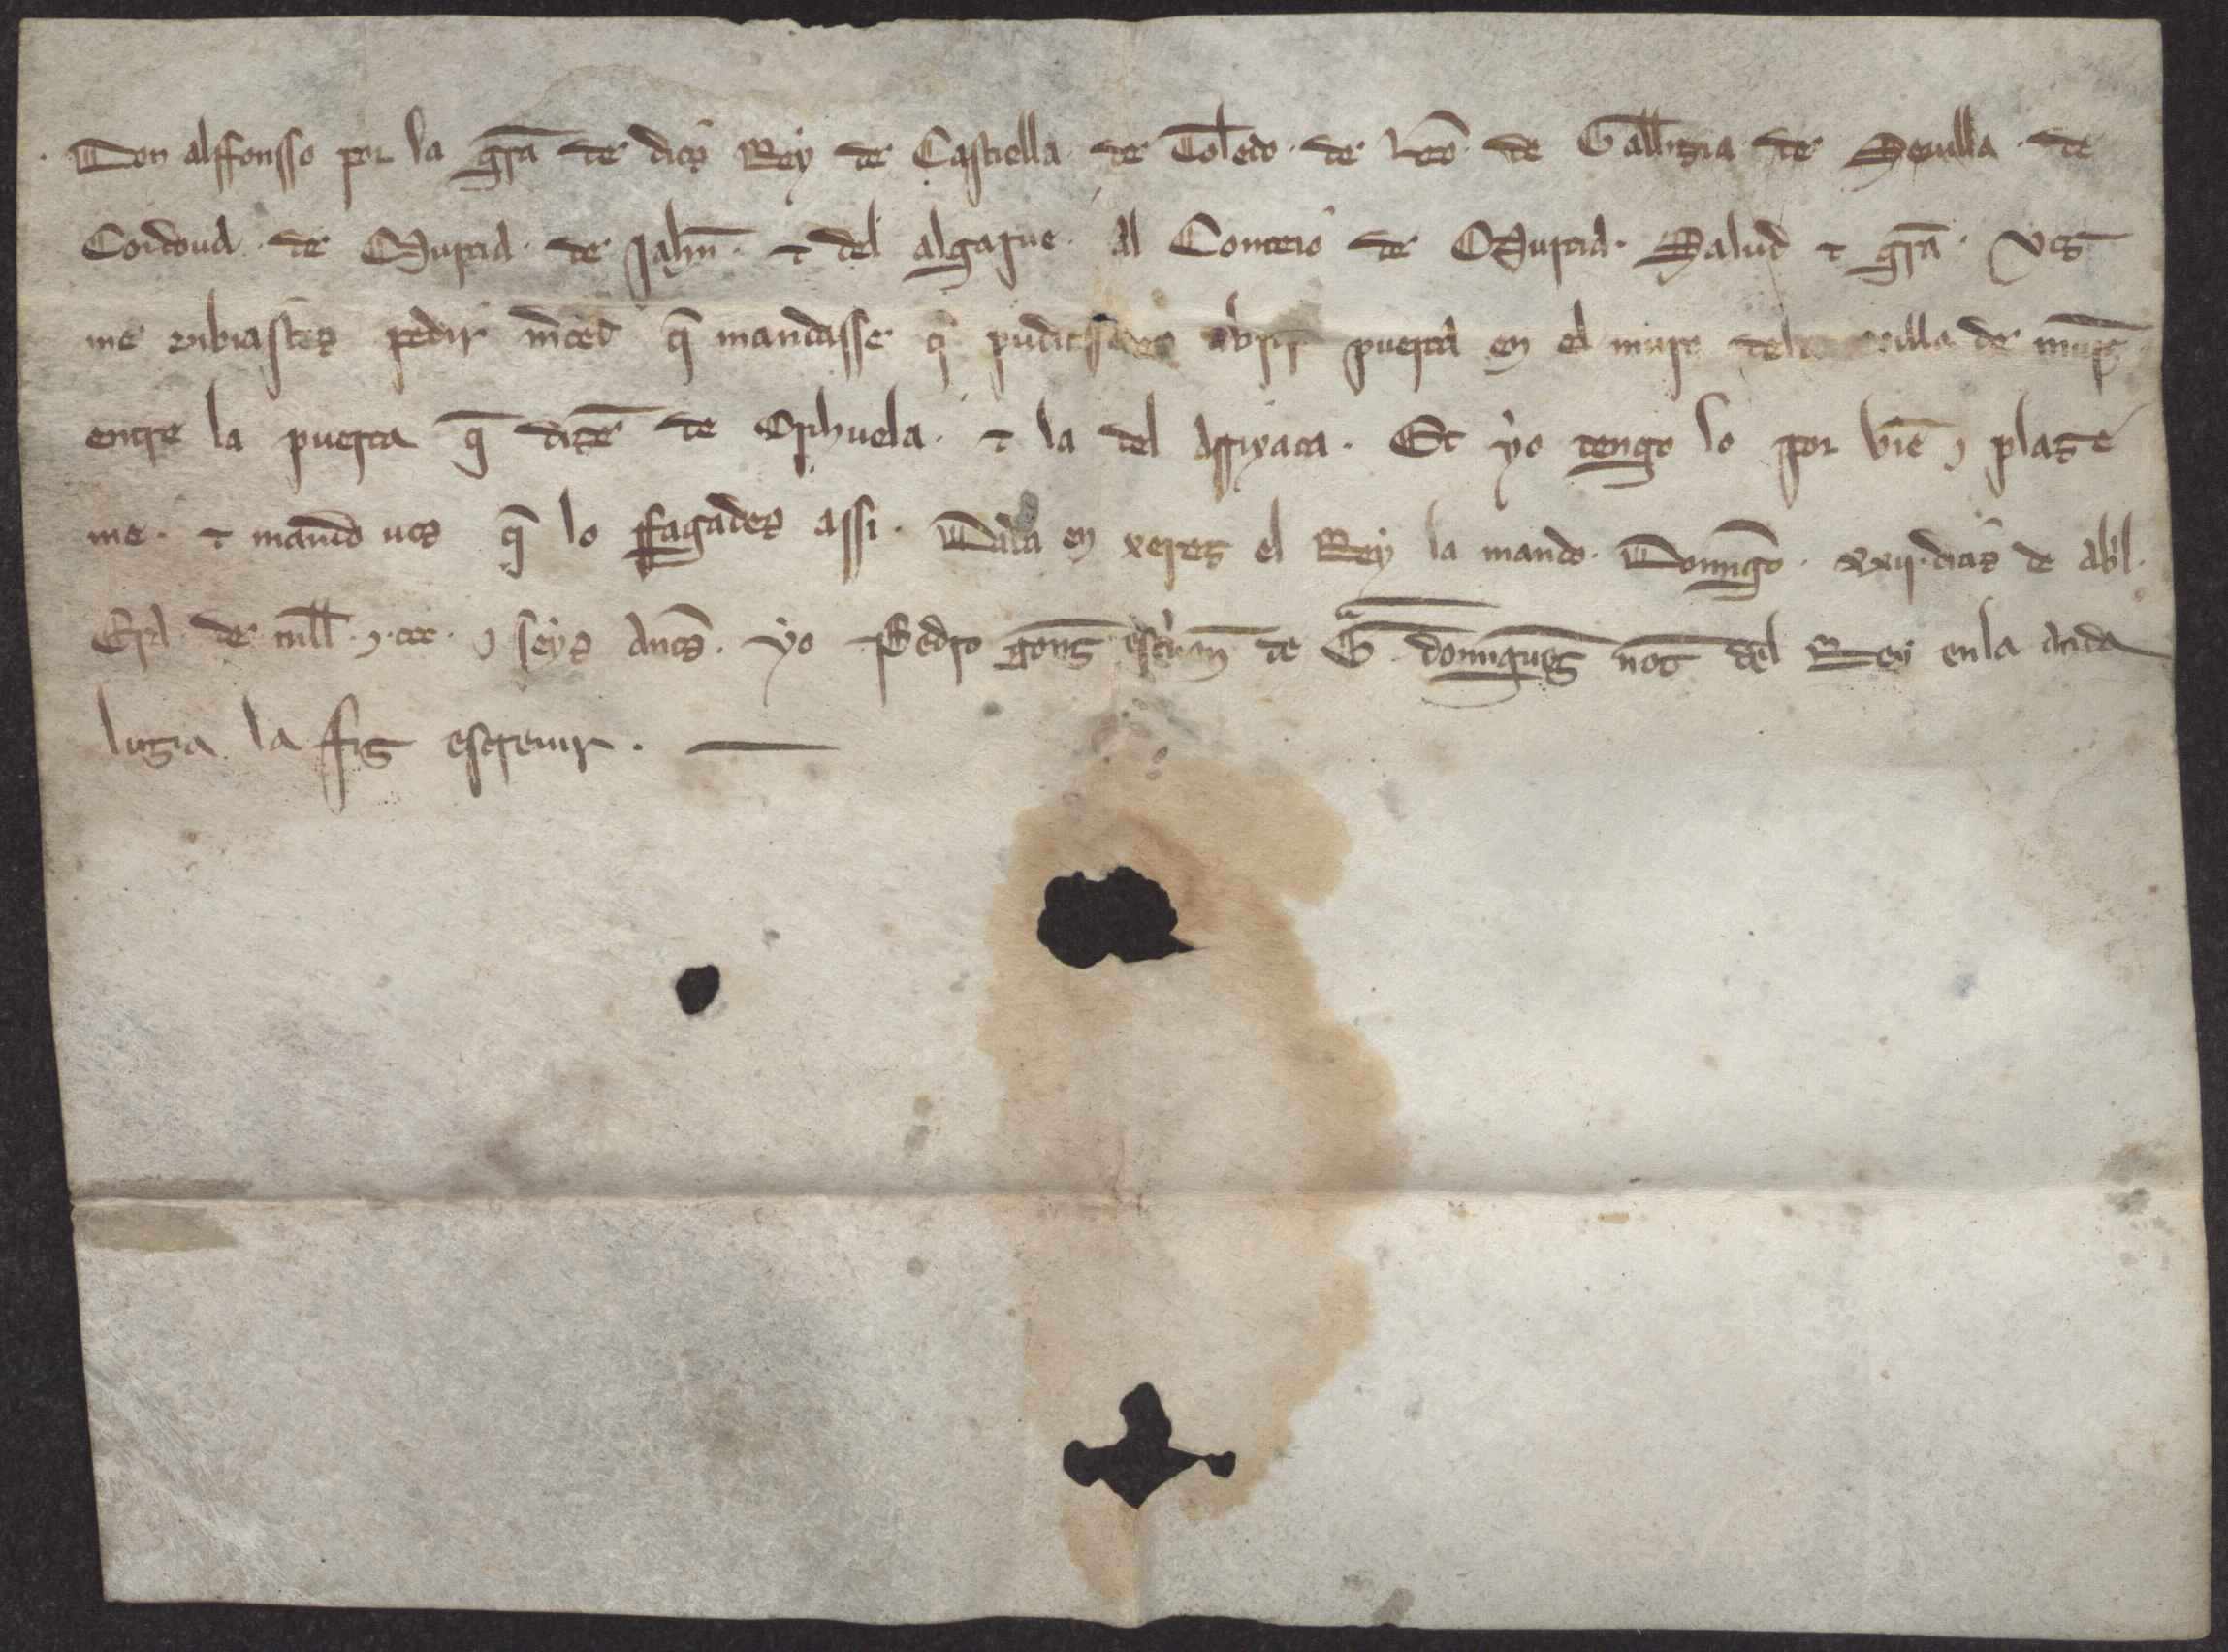 Don alffonsso por la gr̃a de dios Rey de Castiella de Toledo · de Leõ · de Gallizia de Seuilla · de
Cordoua · de Murcia · de Jahñ · ⁊ del algarue · al Conceio de Murcia · Salud ⁊ gr̃a · Vos
me enbiastes pedir m̃ced q̃ mandasse q̃ pudiessedes abrir puerta en el muro dela villa de murc̃
entre la puerta q̃ dizẽ de Orihuela · ⁊ la del Arrixaca · Et yo tengo lo por biẽ ⁊ plaze
me · ⁊ mando uos q̃ lo ffagades assi · Dada en xerez el Rey la mando · Domingo · xxij · dias de abl ·
Era de mill · ⁊ · ccc · ⁊ seys anos · yo Pedro gonz̃ escuañ de G̃ dominguez not̃ del Rey enla anda
luzia la fiz escreuir ·